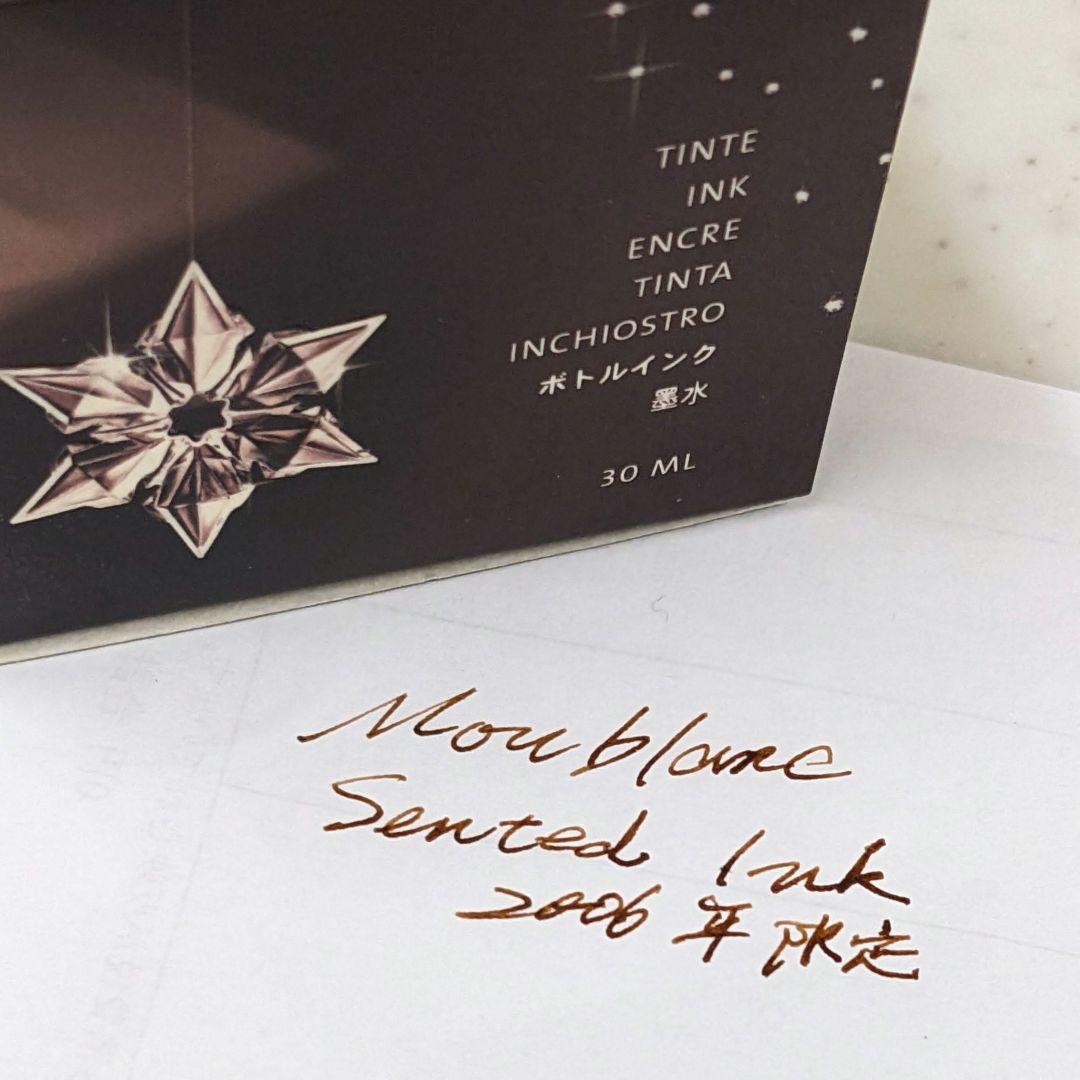 TINTE
INK
ENCRE
TINTA
INCHIOSTRO
ボトルインク
墨水
30 ML
Moublanc
Sented Ink
2006年限定